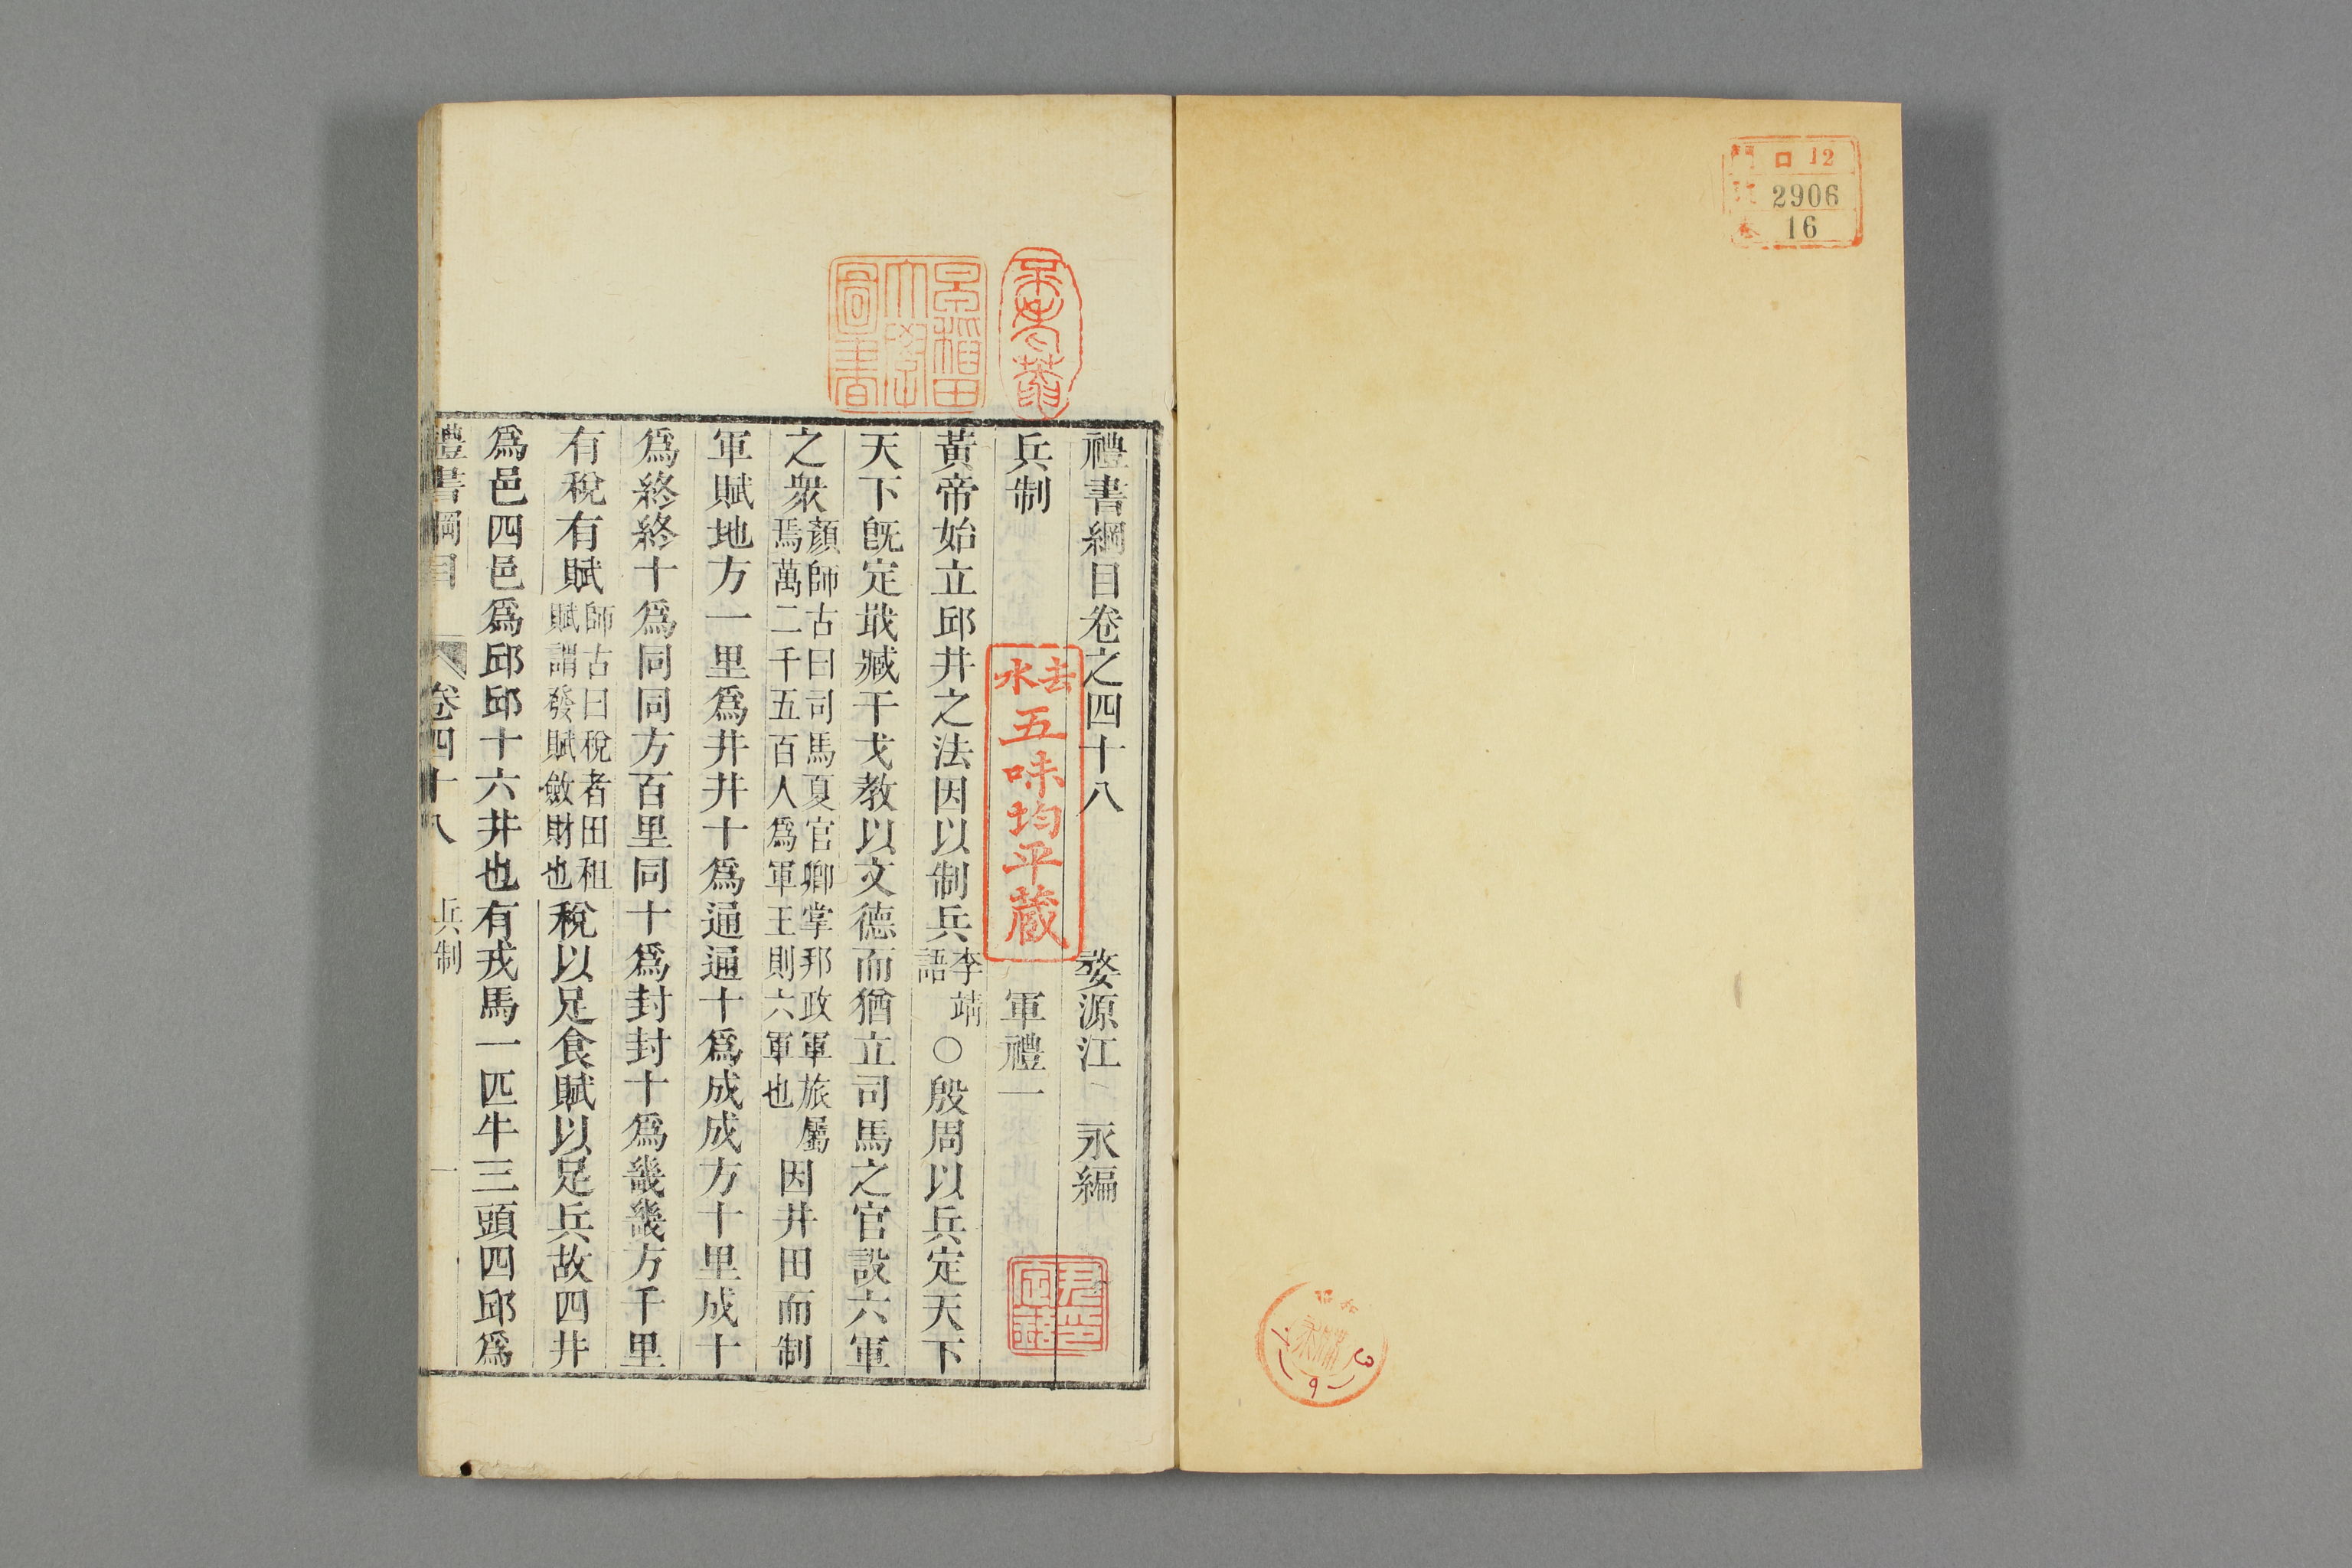 門 口 12
號 2906
卷 16
早稻田大學圖書
禮書綱目卷之四十八 婺源江 永編
兵制 軍禮一
故五味均平蔵
黃帝始立邱井之法因以制兵李靖語○殷周以兵定天下
天下旣定戢臧干戈教以文德而猶立司馬之官設六軍
之衆顏師古曰司馬夏官卿掌邦政軍旅屬焉萬二千五百人爲軍王則六軍也因井田而制
軍賦地方一里爲井井十爲通通十爲成成方十里成十
爲終終十爲同同方百里同十爲封封十爲畿畿方千里
有稅有賦師古曰稅者田租賦謂發賦斂財也稅以足食賦以足兵故四井
爲邑四邑爲邱邱十六井也有戎馬一匹牛三頭四邱爲
禮書綱目 卷四十八 兵制 一